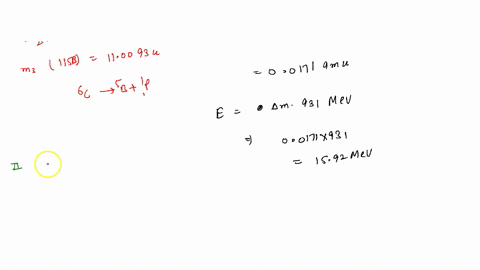 m₃ (115B) = 11.0093u
⁶C → ⁵B + ¹₁P
= 0.0171 amu
E = Δm. 931 MeV
⇒ 0.0171×931
= 15.92 MeV
II